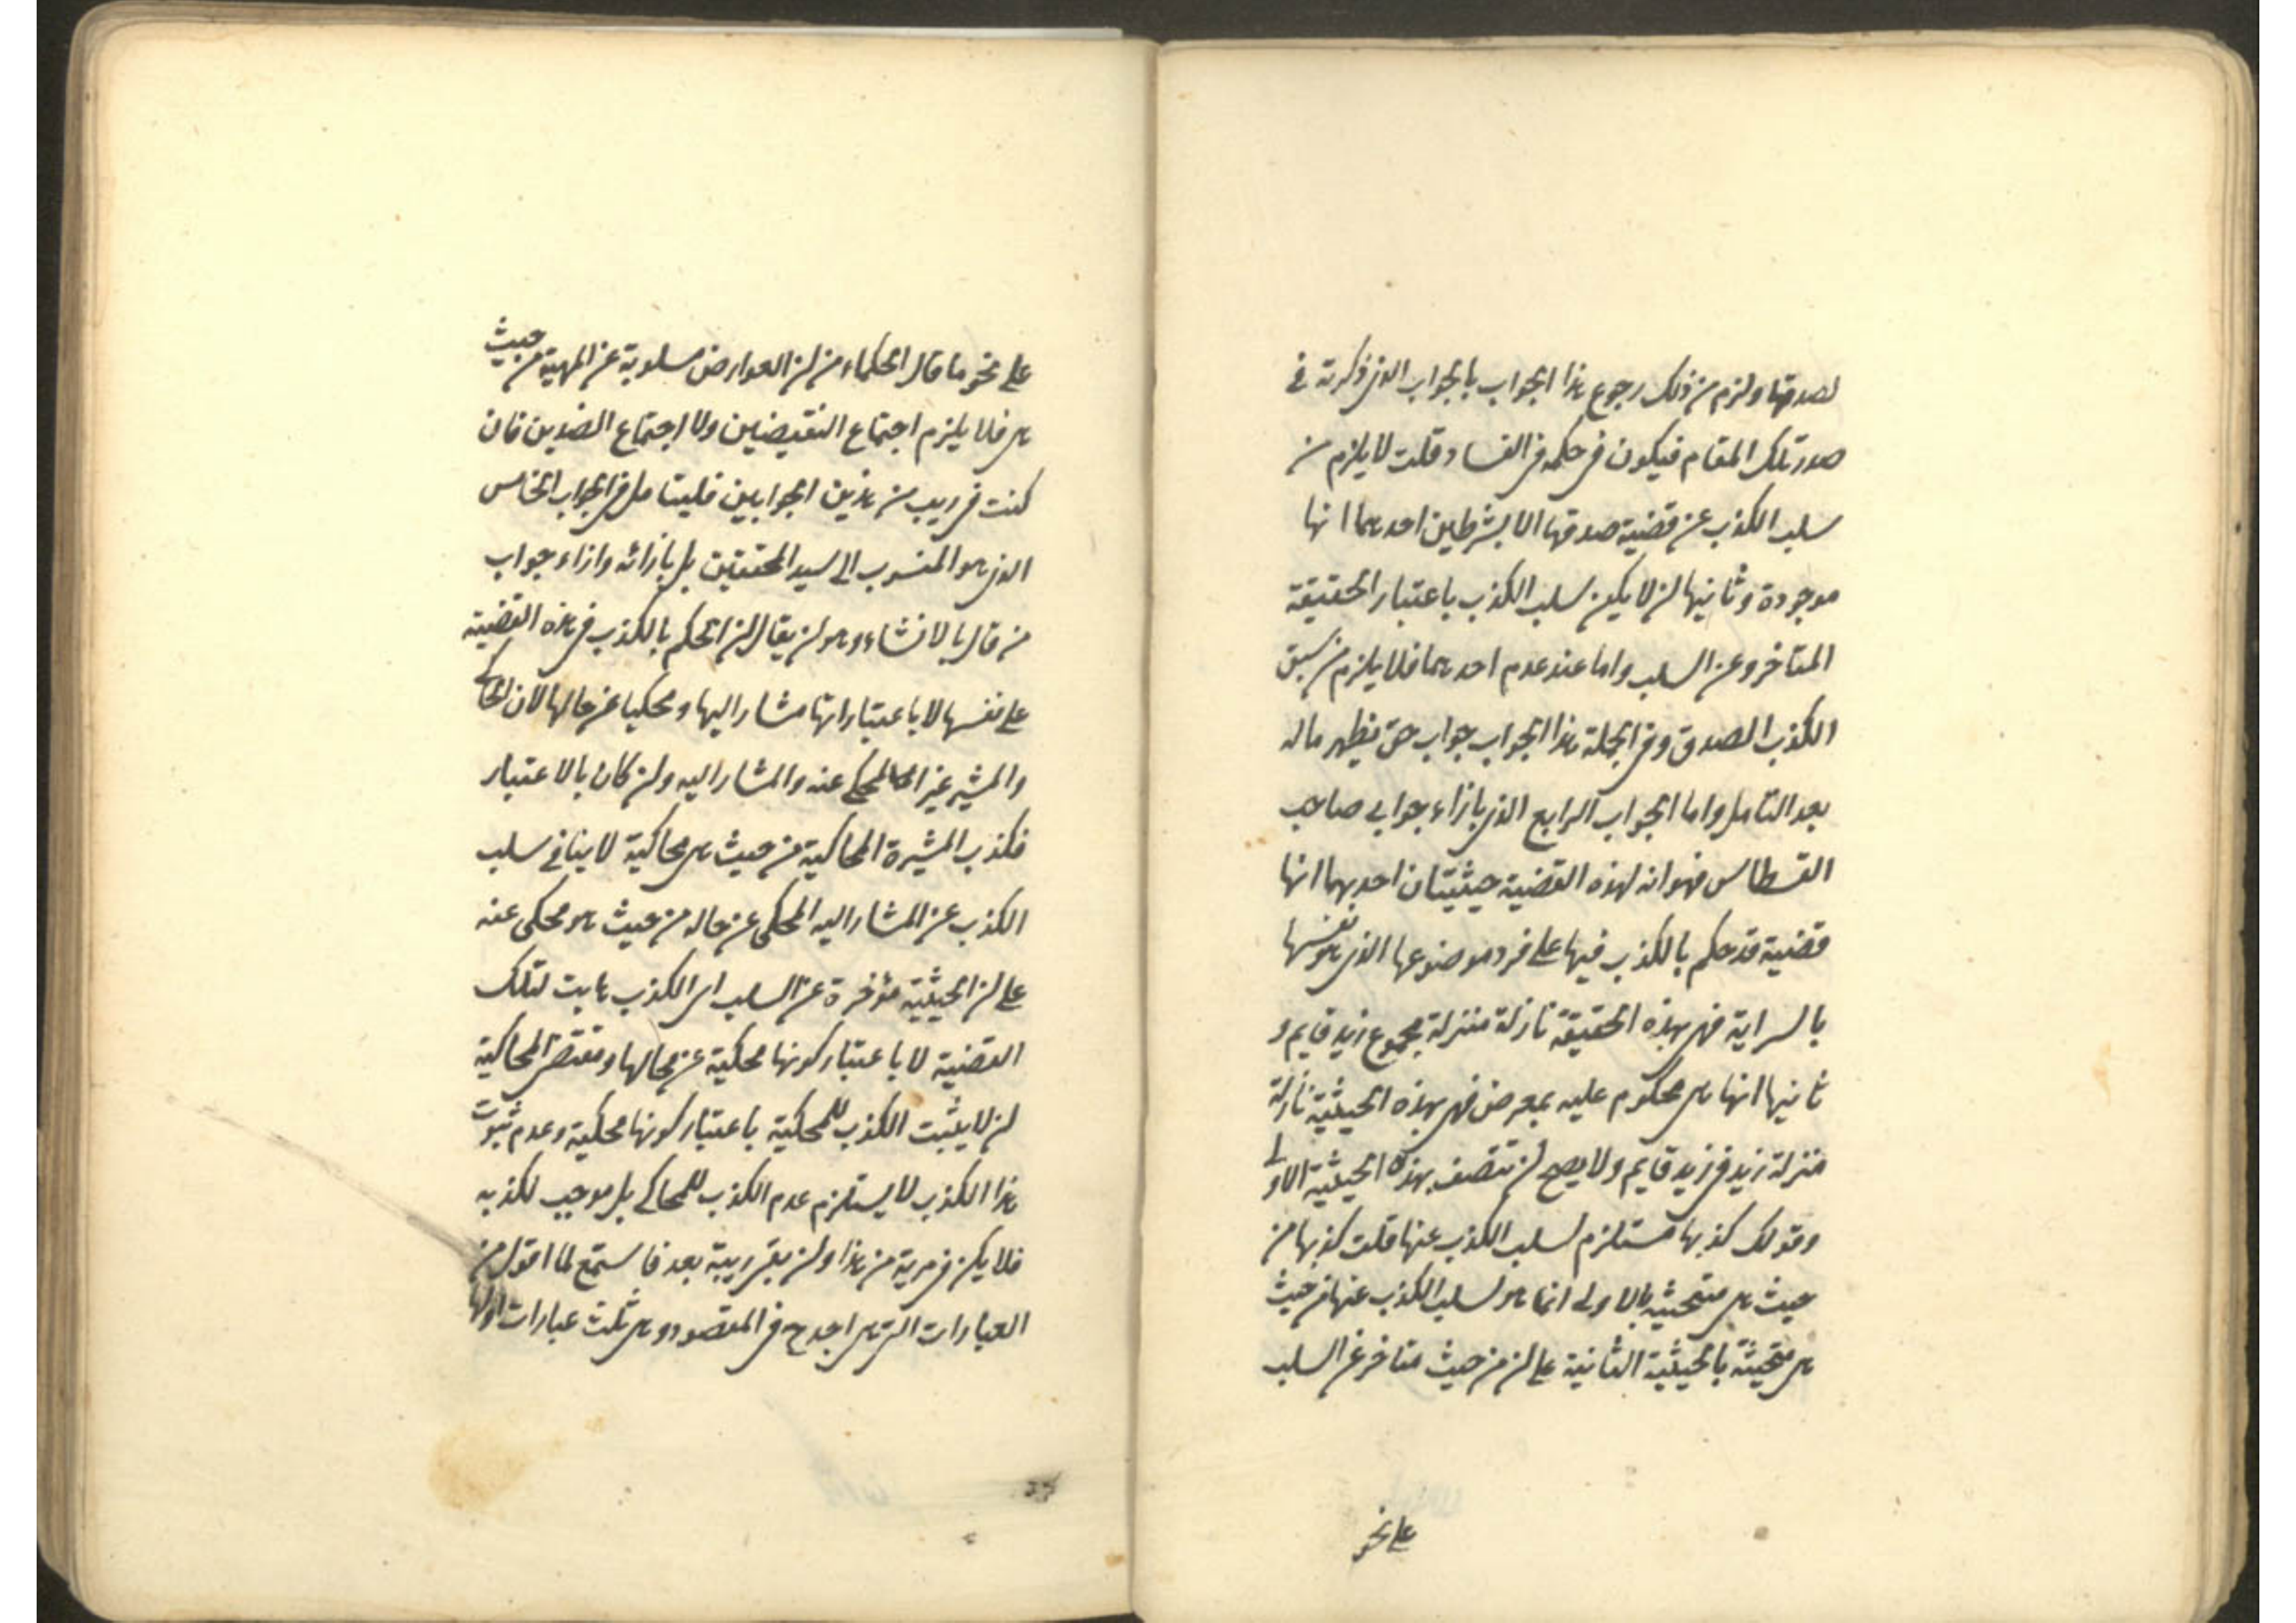 لصدقها ولزم من ذلك رجوع هذا الجواب بالجواب الذى ذكرته فى
صدر تلك المقام فيكون فى حكمه فى الفساد قلت لا يلزم من
سلب الكذب عن قضية صدقها الا بشرطين احدهما انها
موجودة وثانيها ان لا يكون سلب الكذب باعتبار الحقيقة
المتاخر وعن السلب واما عند عدم احدهما فلا يلزم من سبق
الكذب الصدق وفى الجملة هذا الجواب جواب حق يظهر ماله
بعد التامل واما الجواب الرابع الذى بازاء جوابى صاحب
القسطاس فهو انه لهذه القضية حيثيتان احديهما انها
قضية قد حكم بالكذب فيها على فرد موضوعها الذى هو نفسها
بالسراية فهى بهذه الحقيقة نازلة منزلة مجموع زيد قايم و
ثانيها انها هى محكوم عليه بمعرض فهى بهذه الحيثية نازلة
منزلة زيد فى زيد قايم ولا يصح ان تتصف بهذه الحيثية الاولى
وقولك كذبها مستلزم لسلب الكذب عنها قلت كذبها من
حيث هى متحيثة بالاولى انما هو لسلب الكذب عنها من حيث
هى متحيثة بالحيثية الثانية على ان من حيث متاخر عن السلب
على نحو
على نحو ما قال الحكماء من ان العوارض مسلوبة عن المهية من حيث
هى فلا يلزم اجتماع النقيضين ولا اجتماع الضدين فان
كنت فى ريب من هذين الجوابين فليتامل فى الجواب الخامس
الذى هو المنسوب الى سيد المحققين بل بازائه وازاء جواب
من قال بالانشاء وهو ان يقال ان الحكم بالكذب فى هذه القضية
على نفسها لا باعتبار انها مشار اليها ومحكيا عن حالها لان الحاكى
والمشير غير المحكى عنه والمشار اليه وان كان بالاعتبار
فكذب المشيرة الحاكية من حيث هى محاكية لا ينافى سلب
الكذب عن المشار اليه المحكى عن حاله من حيث هو محكى عنه
على ان الحيثية مؤخرة عن السلب اى الكذب ثابت لتلك
القضية لا باعتبار كونها محكية عن حالها ومقتضى المحاكية
ان لا يثبت الكذب للمحكية باعتبار كونها محكية وعدم ثبوت
هذا الكذب لا يستلزم عدم الكذب للمحاكى بل موجب لكذبه
فلا يكن فى مرية من هذا وان بقى ريبة بعد فاستمع لما اقول من
العبارات التى هى اجدح فى المقصود وهى ثلث عبارات اولها